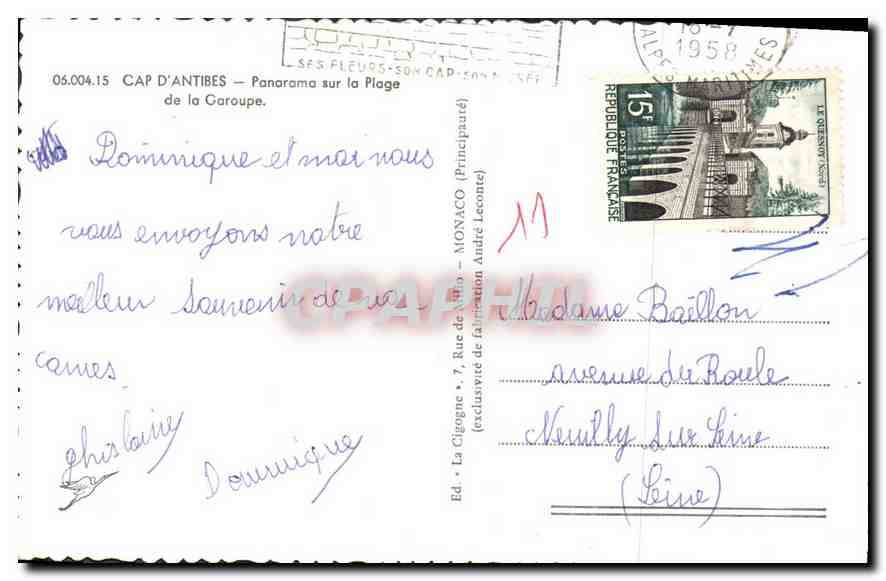 SES FLEURS-SON CAP-SON MUSÉE
1958
ALPES MARITIMES
06.004.15 CAP D'ANTIBES — Panorama sur la Plage
de la Garoupe.
15F
REPUBLIQUE FRANÇAISE
POSTES
LE QUESNOY (Nord)
Dominique et moi nous
vous envoyons notre
meilleur souvenir de
Cannes.
ghislaine
Dominique
Ed. "La Cigogne", 7, Rue de Millo — MONACO (Principauté)
(exclusivité de fabrication André Leconte)
11
CPAPHIL
Madame Baëllon
avenue du Roule
Neuilly sur Seine
(Seine)